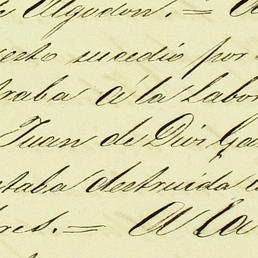 e Algodon. = A
erto sucedió por
traba á la Labor
Juan de Dios Ga
staba destruida
res. = A la